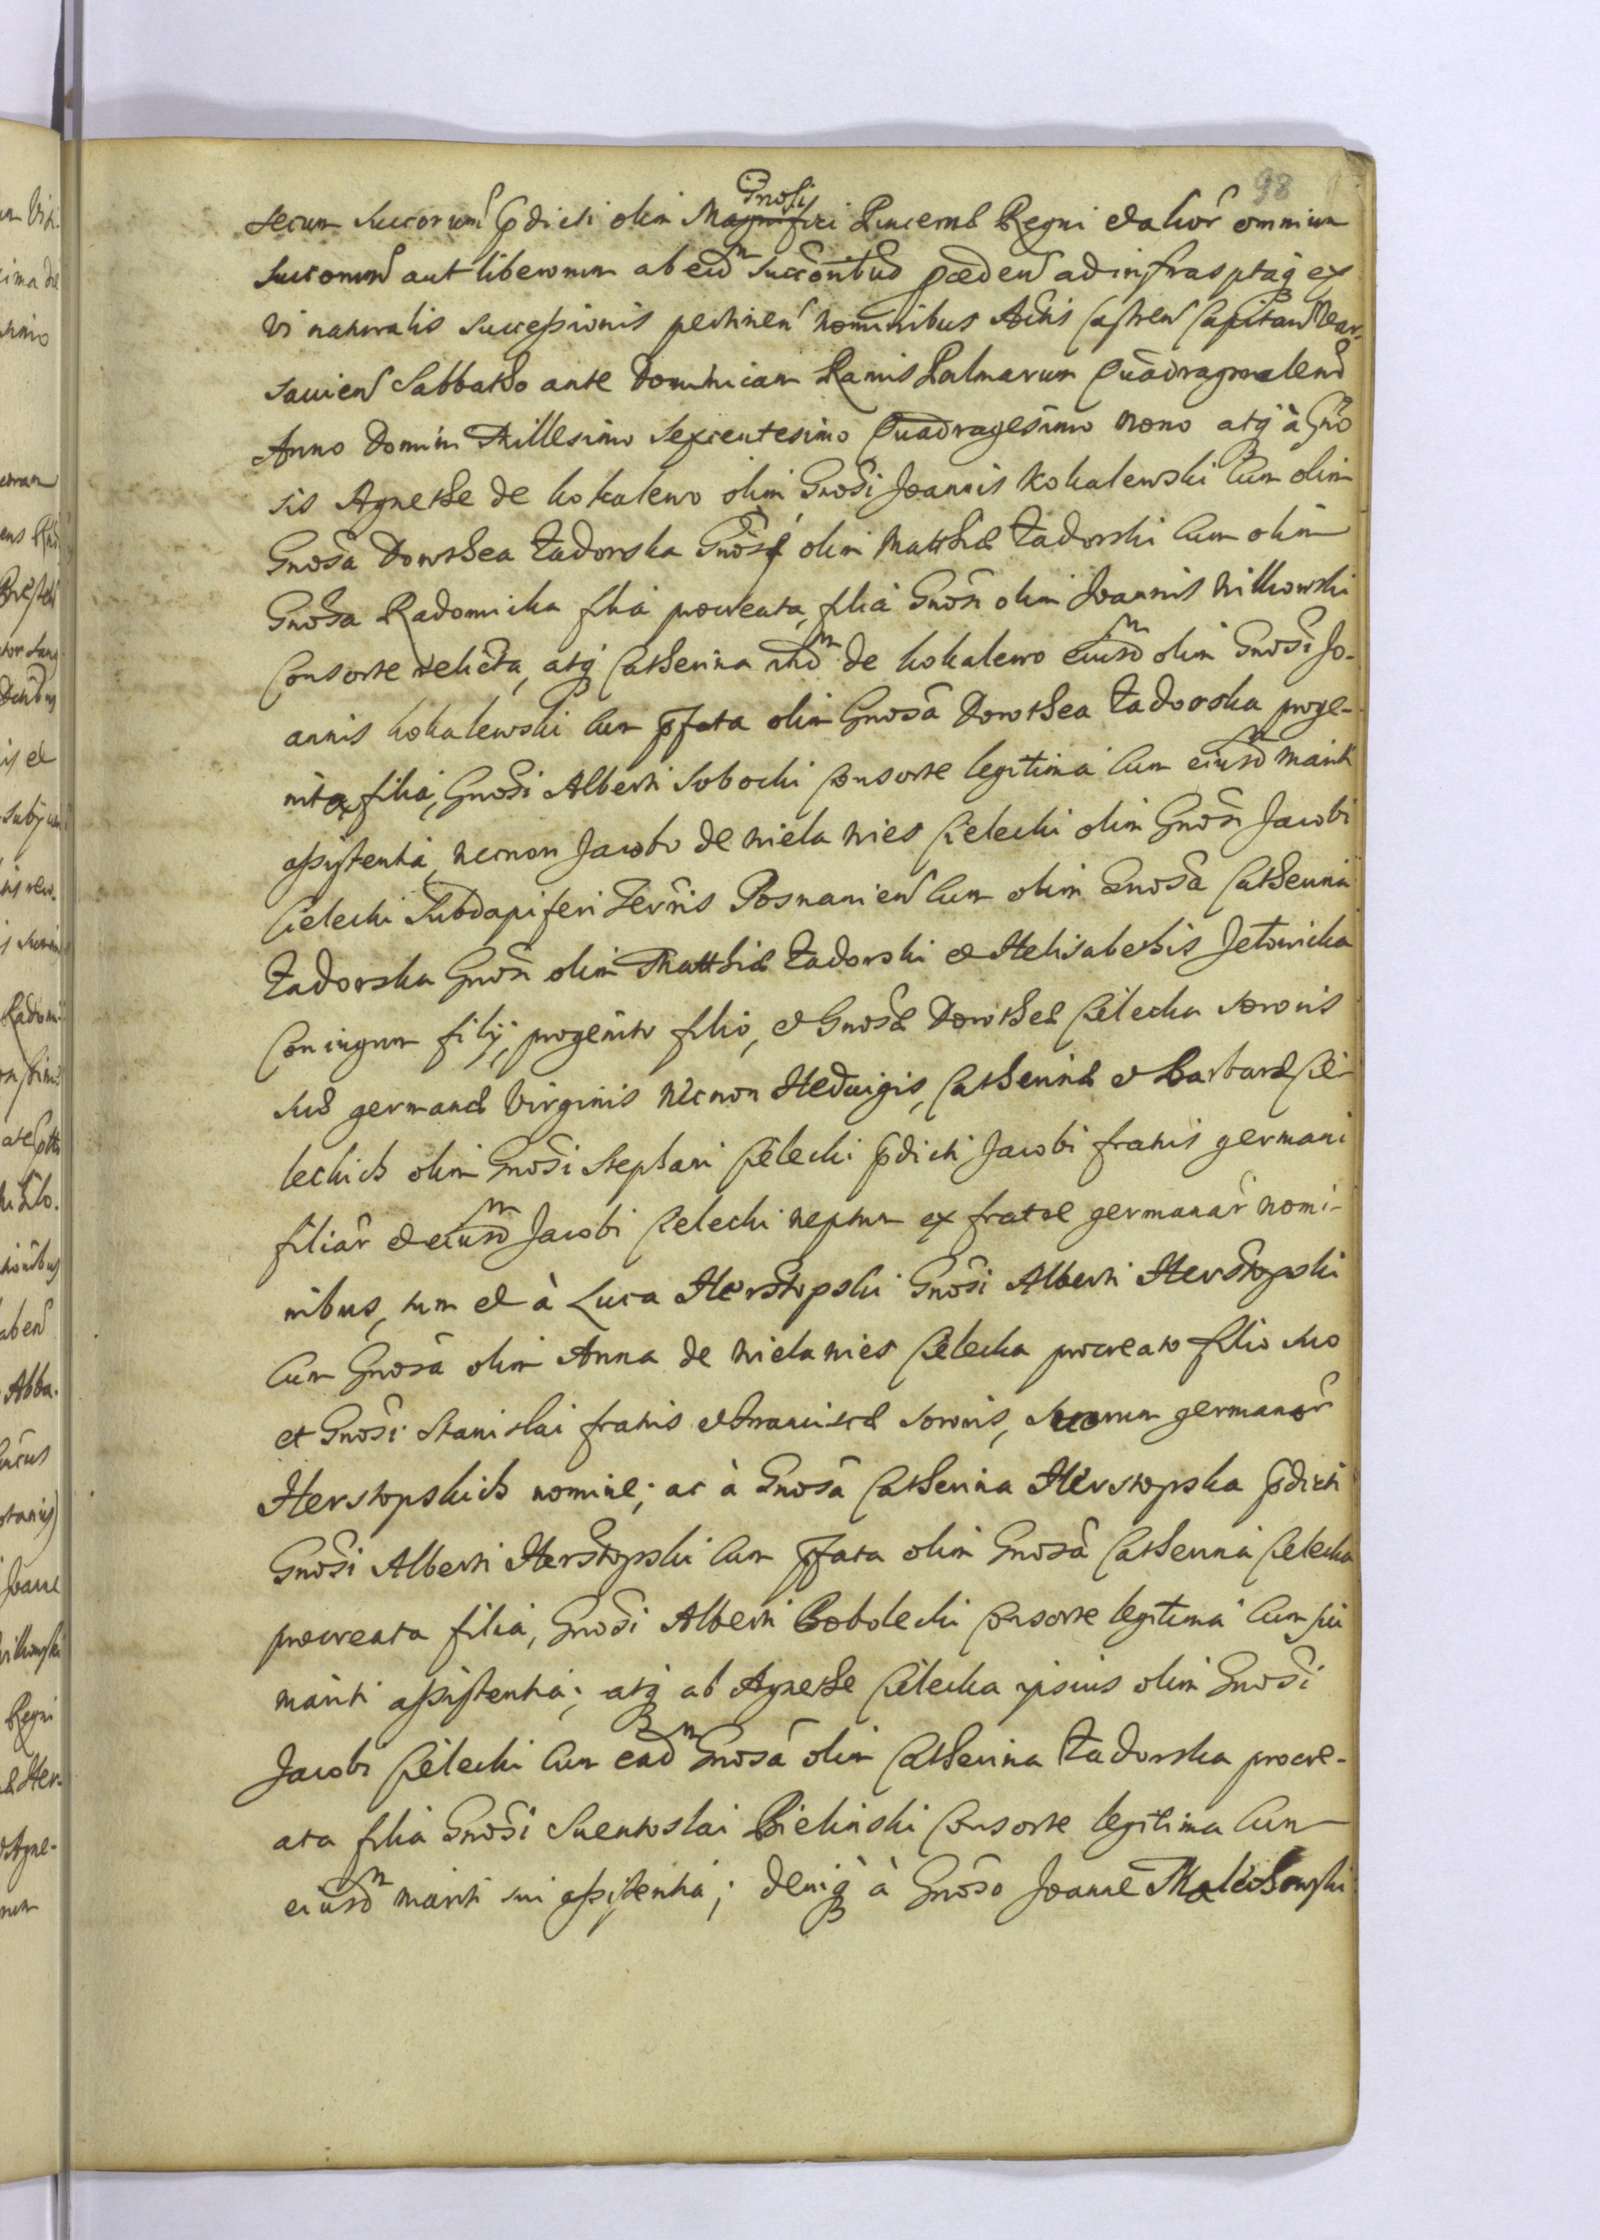 98
Gnosi
secum succorum pdicti olim Magnifici Pincernæ Regni et alior omnium
succorum aut liberorum ab eisdm succoribus præden ad infraspta ex
vi naturalis successionis pertinen nominibus Actis Castren Capitan War-
savien Sabbatho ante Dominicam Ramis Palmarum Quadragesimalem
Anno Domini Millesimo Sexcentesimo Quadragesimo Nono atq à Gno
sis Agnethe de Kokalewo olim Gnosi Joannis Kokalewski Cum olim
Gnosa Dorothea Zadorska Gnosi olim Matthiæ Zadorski Cum olim
Gnosa Radomicka filia procreata, filia Gnosi olim Joannis Wilkowski
Consorte relicta, atq Catherina itidm de Kokalewo eiusdm olim Gnosi Jo-
annis Kokalewski Cum pfata olim Gnosa Dorothea Zadorska proge-
nita filia, Gnosi Alberti Sobocki Consorte legitima Cum eiusdm mariti
assistentia, necnon Jacobo de Wiela Wies Cielecki olim Gnosi Jacobi
Cielecki Subdapiferi Terris Posnanien Cum olim Gnosa Catherina
Zadorska Gnosi olim Matthiæ Zadorski et Helisabethis Jetowicka
Coniugum filij, progenito filio, et Gnosæ Dorotheæ Cielecka sororis
suæ germanæ Virginis necnon Hedwigis, Catherinæ et Barbaræ Cie-
leckich olim Gnosi Stephani Cielecki pdicti Jacobi fratris germani
filiar et eiusdm Jacobi Cielecki neptum ex fratre germanar nomi-
nibus, tum et à Luca Herstopski Gnosi Alberti Herstopski
Cum Gnosa olim Anna de Wiela Wies Cielecka procreato filio suo
et Gnosi Stanislai fratris et Franciscæ sororis, suorum germanor
Herstopskich nomine; ac à Gnosa Catherina Herstopska pdicti
Gnosi Alberti Herstopski Cum pfata olim Gnosa Catherina Cielecka
procreata filia, Gnosi Alberti Bobolecki Consorte legitima Cum sui
mariti assistentia; atq ab Agnethe Cielecka ipsius olim Gnosi
Jacobi Cielecki Cum eadm Gnosa olim Catherina Zadorska procre-
ata filia Gnosi Suentoslai Bielinski Consorte legitima Cum
eiusdm mariti sui assistentia; deniq à Gnoso Joanne Malechowski